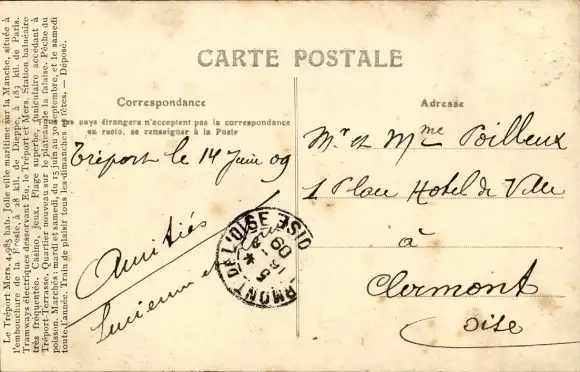 Le Tréport Mers, 4.985 hab. Jolie ville maritime sur la Manche, située à
l'embouchure de la Bresle, à 28 kil. de Dieppe, à 183 kil. de Paris.
Tramways électriques desservant Eu, le Tréport et Mers. Station balnéaire
très fréquentée. Casino, jeux. Plage superbe, funiculaire accédant à
Tréport-Terrasse, Quartier nouveau sur le plateau de la falaise. Pêche du
poisson. Marchés: mardi et samedi, du 15 juin au 30 septembre, et le samedi
toute l'année. Train de plaisir tous les dimanches et fêtes. — Déposé.
CARTE POSTALE
Correspondance
Les pays étrangers n'acceptent pas la correspondance
au recto, se renseigner à la Poste
Tréport le 14 Juin 09
Amitiés
Lucienne et
CLERMONT DE L'OISE OISE
15
09
Adresse
Mr et Mme Poilleux
1 Place Hotel de Ville
à
Clermont
Oise